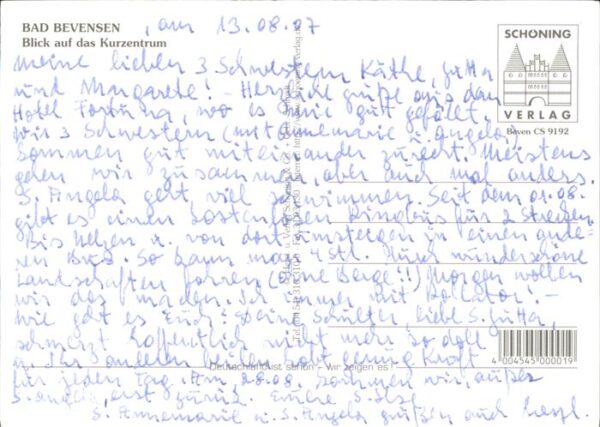 BAD BEVENSEN
Blick auf das Kurzentrum
, am 13.08.07
SCHÖNING
VERLAG
Beven CS 9192
Meine lieben 3 Schwestern Käthe, Jutta
und Margarete! - Herzliche Grüße aus dem
Hotel Fortuna, wo es mir gut gefällt.
Wir 3 Schwestern (mit Annemarie u. Angela)
kommen gut miteinander zurecht. Meistens
gehen wir zusammen, aber auch mal anders.
S. Angela geht viel schwimmen. Seit dem 01.08.
gibt es einen kostenlosen Ringbus für 2 Strecken
Bis Uelzen u. von dort Umsteigen in einen ande-
ren Bus. So kann man 4 Std. durch wunderschöne
Landschaften fahren (ohne Berge!!) Morgen wollen
wir das machen. Ich immer mit Rollator! -
Wie geht es Euch? Deine Schulter, liebe S. Jutta,
schmerzt hoffentlich nicht mehr so doll
u. Ihr anderen beiden habt genug Kraft
für jeden Tag. Am 28.08. kommen wir, außer
S. Angela, erst zurück. Eure S.
S. Annemarie u. S. Angela grüßen auch herzl.
Deutschland ist schön - wir zeigen es!
4 004545 000019